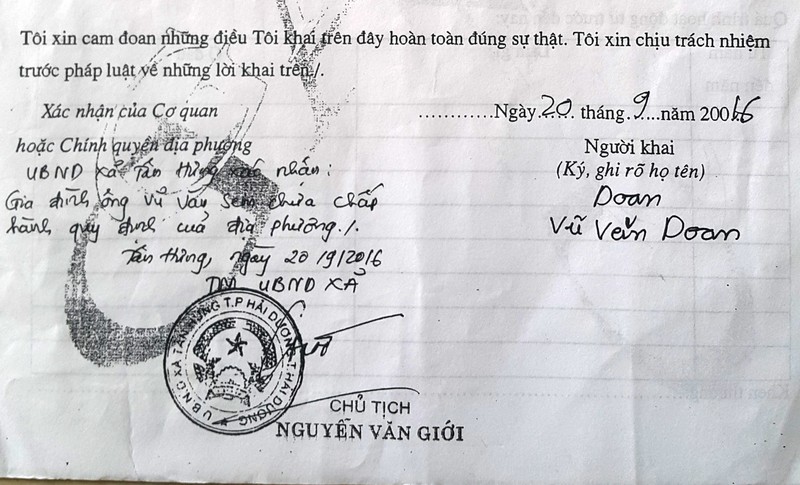 Tôi xin cam đoan những điều Tôi khai trên đây hoàn toàn đúng sự thật. Tôi xin chịu trách nhiệm
trước pháp luật về những lời khai trên./.
Xác nhận của Cơ quan
hoặc Chính quyền địa phương
............Ngày 20 tháng 9 năm 20016
Người khai
(Ký, ghi rõ họ tên)
Doan
Vũ Văn Doan
UBND xã Tân Hưng xác nhận:
Gia đình ông Vũ Văn Sem chưa chấp
hành quy định của địa phương./.
Tân Hưng, ngày 20/9/2016
TM UBND XÃ
U.B.N.D XÃ TÂN HƯNG T.P HẢI DƯƠNG T.HẢI DƯƠNG
CHỦ TỊCH
NGUYỄN VĂN GIỚI